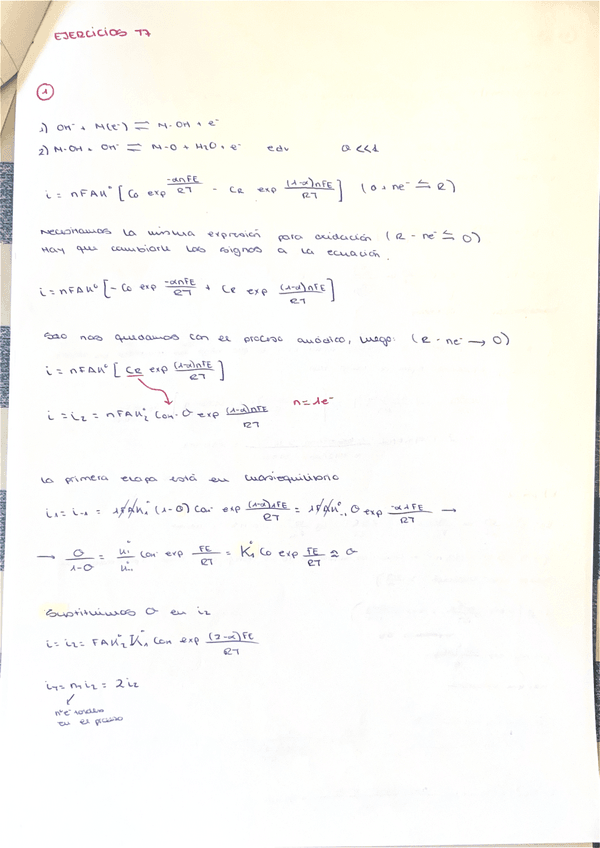 EJERCICIOS T7
1
1) OH⁻ + M(e⁻) ⇌ M-OH + e⁻
2) M-OH + OH⁻ ⇌ M-O + H2O + e⁻ edv θ<<1
i = nFAK° [Co exp -αnFE/RT - CR exp (1-α)nFE/RT] (O + ne⁻ ⇆ R)
Necesitamos la misma expresión para oxidación (R - ne⁻ ⇆ O)
Hay que cambiarle los signos a la ecuación.
i = nFAK° [-Co exp -αnFE/RT + CR exp (1-α)nFE/RT]
Solo nos quedamos con el proceso anódico, luego: (R - ne⁻ → O)
i = nFAK° [CR exp (1-α)nFE/RT]
i = i2 = nFAK°2 COH⁻ θ exp (1-α)nFE/RT n=1e⁻
La primera etapa está en cuasiequilibrio
i1 = i-1 = 1FAK°1 (1-θ) COH⁻ exp (1-α)1FE/RT = 1FAK°-1 θ exp -α1FE/RT →
→ θ/1-θ = K°1/K°-1 COH exp FE/RT = K°1 Co exp FE/RT ≃ θ
Sustituimos θ en i2
i = i2 = FAK°2 K°1 COH exp (2-α)FE/RT
= m i2 = 2i2
nº e⁻ totales
en el proceso